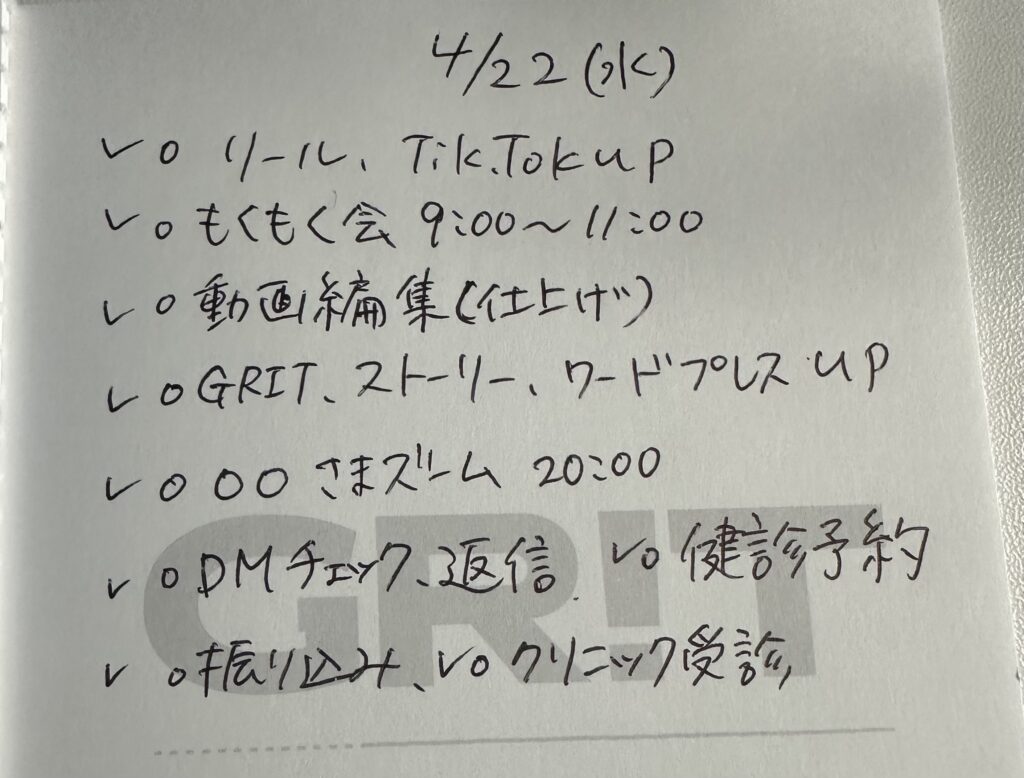 4/22(水)
✓○ リール、TikTok up
✓○ もくもく会 9:00〜11:00
✓○ 動画編集(仕上げ)
✓○ GRIT、ストーリー、ワードプレス up
✓○ ○○ さまズーム 20:00
✓○ DMチェック、返信 ✓○ 健診予約
✓○ 振り込み、✓○ クリニック受診
GRIT